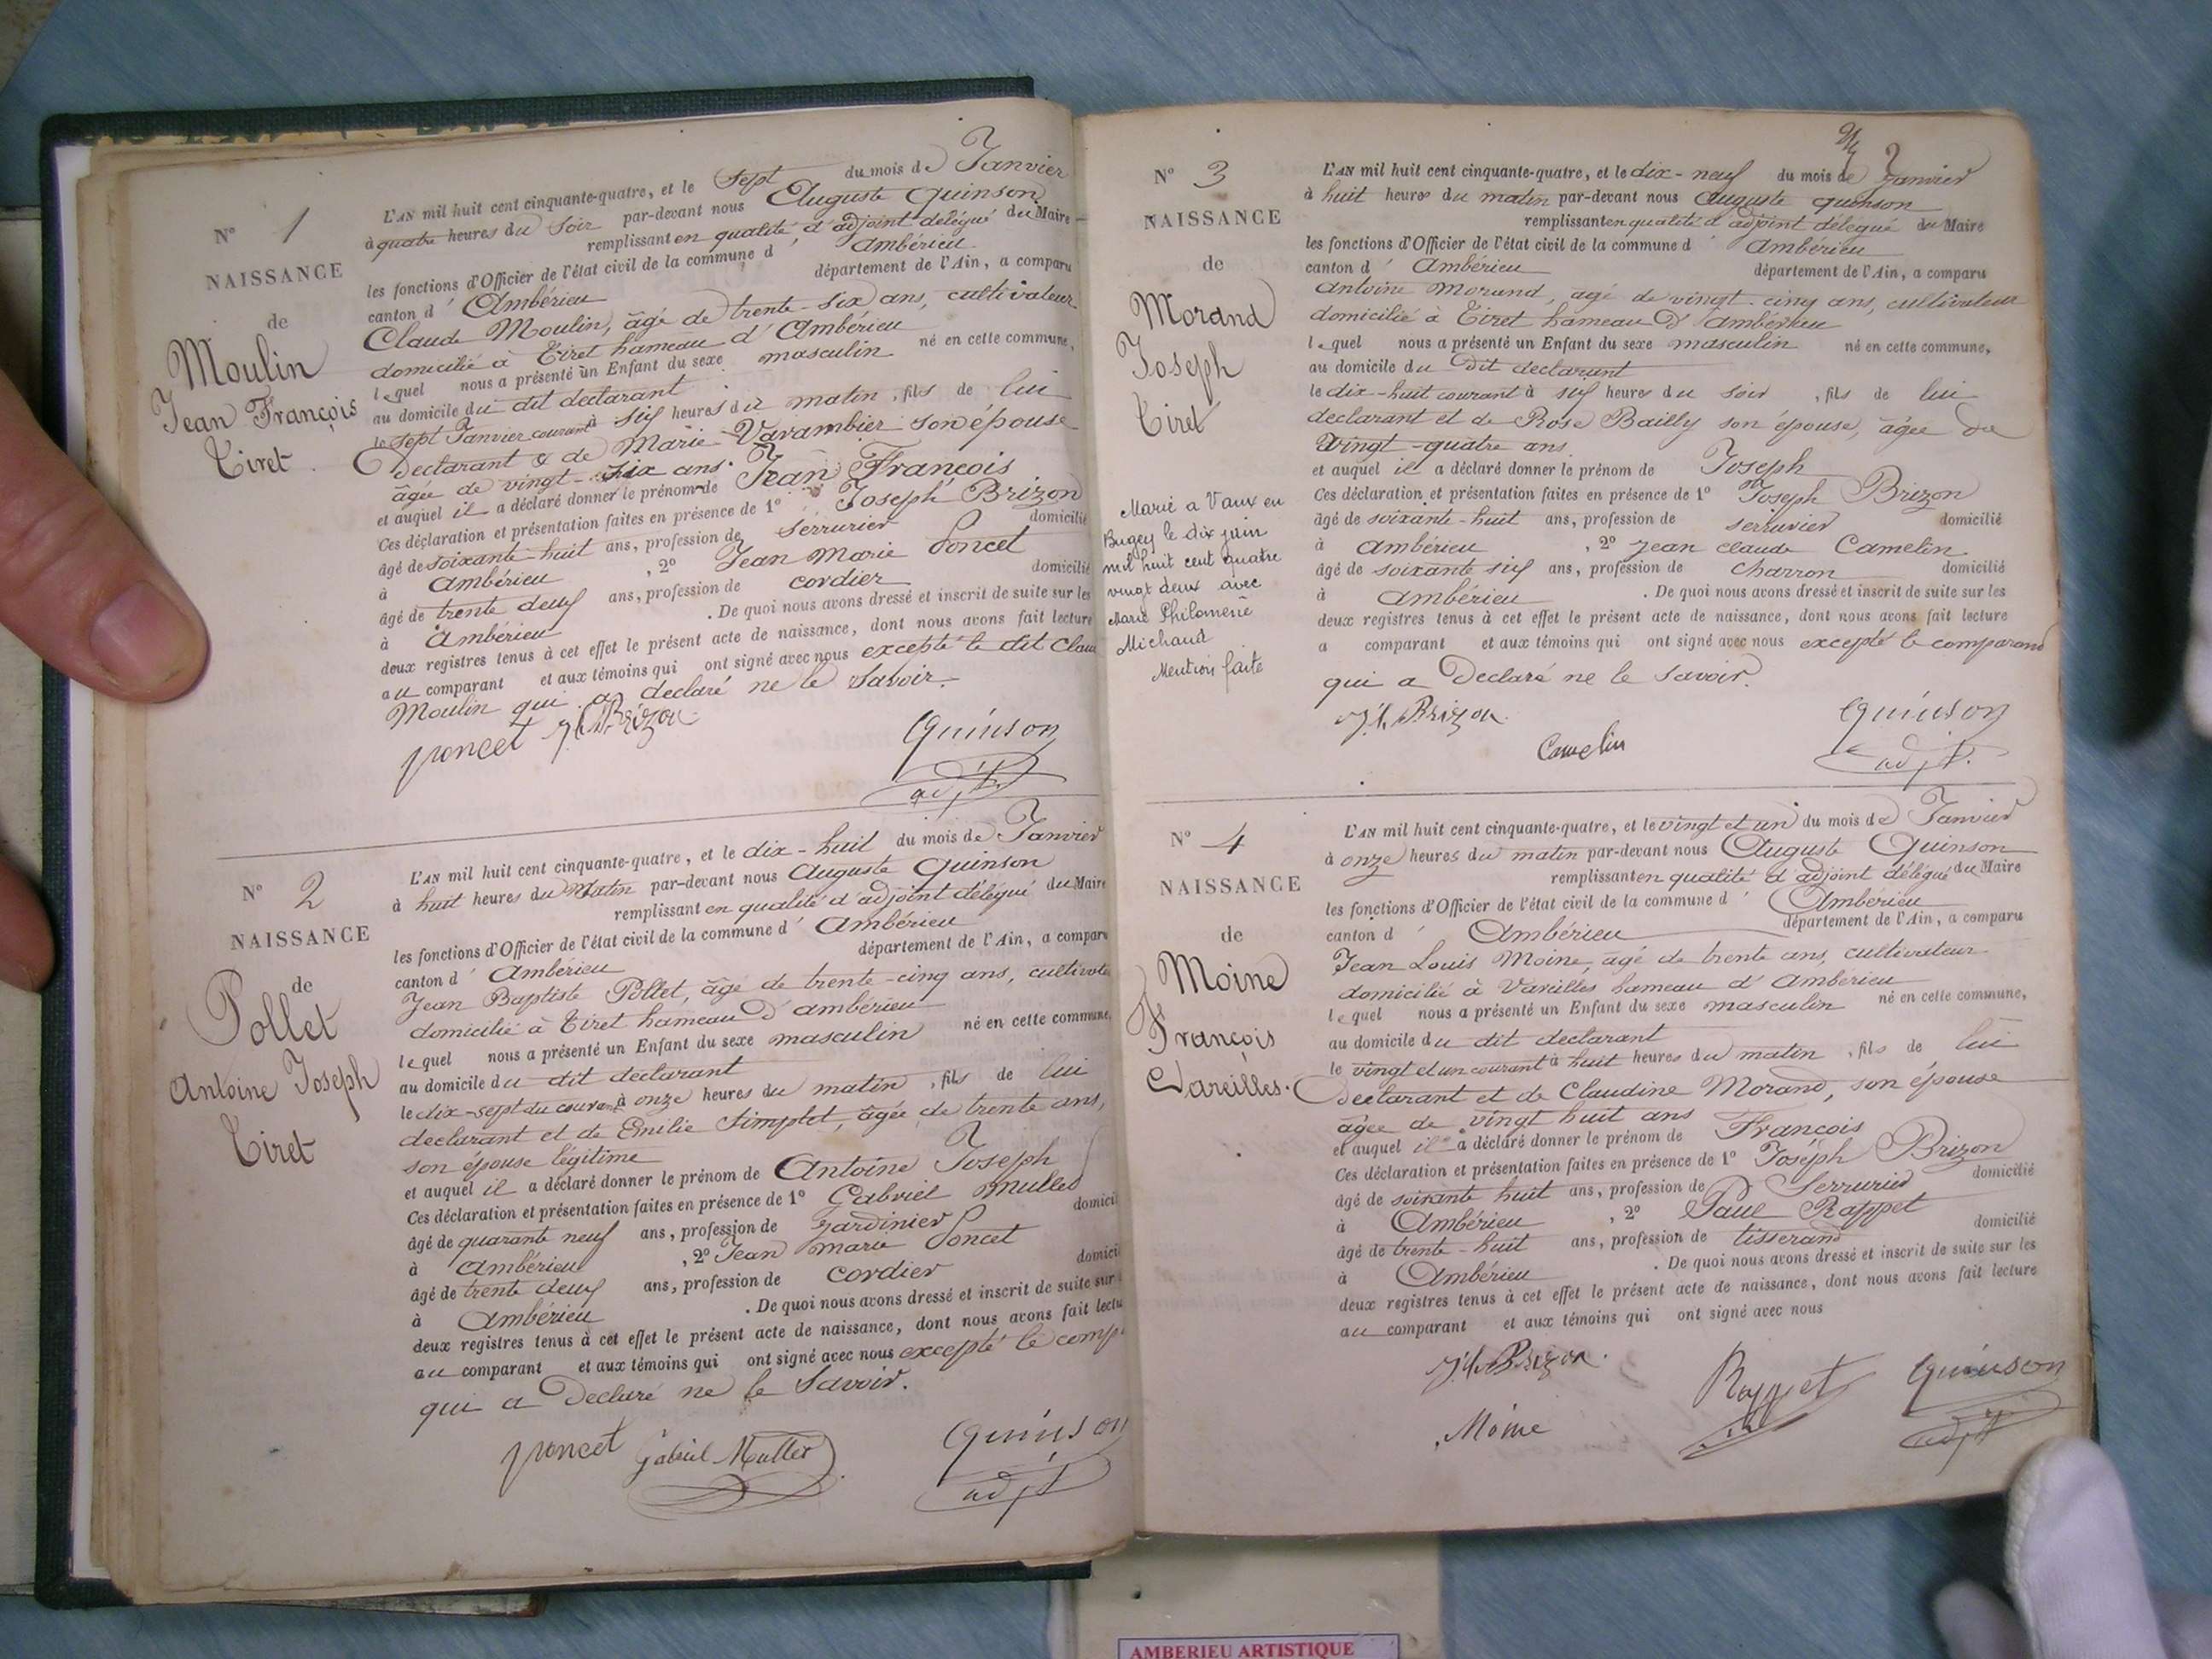 N° 1
NAISSANCE
de
Moulin
Jean François
Tiret.
L'AN mil huit cent cinquante-quatre, et le Sept du mois de Janvier
à quatre heures du Soir par-devant nous Auguste Quinson
remplissant en qualité d'adjoint délégué du Maire
les fonctions d'Officier de l'état civil de la commune d' Ambérieu
canton d' Ambérieu département de l'Ain, a comparu
Claude Moulin, âgé de trente-six ans, cultivateur
domicilié à Tiret hameau d'Ambérieu
lequel nous a présenté un Enfant du sexe masculin né en cette commune,
au domicile du dit déclarant
le sept Janvier courant à six heures du matin, fils de lui
Déclarant & de Marie Varambier son épouse
âgée de vingt-six ans.
et auquel il a déclaré donner le prénom de Jean François
Ces déclaration et présentation faites en présence de 1° Joseph Brizon
âgé de soixante-huit ans, profession de Serrurier domicilié
à Ambérieu, 2° Jean Marie Poncet
âgé de trente deux ans, profession de cordier domicilié
à Ambérieu. De quoi nous avons dressé et inscrit de suite sur les
deux registres tenus à cet effet le présent acte de naissance, dont nous avons fait lecture
au comparant et aux témoins qui ont signé avec nous excepté le dit Clau
Moulin qui a déclaré ne le Savoir.
poncet Brizon
Quinson
adjt
N° 2
NAISSANCE
de
Pollet
Antoine Joseph
Tiret
L'AN mil huit cent cinquante-quatre, et le dix-huit du mois de Janvier
à huit heures du Matin par-devant nous Auguste Quinson
remplissant en qualité d'adjoint délégué du Maire
les fonctions d'Officier de l'état civil de la commune d' Ambérieu
canton d' Ambérieu département de l'Ain, a comparu
Jean Baptiste Pollet, âgé de trente-cinq ans, cultivate
domicilié à Tiret hameau d'ambérieu
lequel nous a présenté un Enfant du sexe masculin né en cette commune,
au domicile du dit déclarant
le dix-sept du courant à onze heures du matin, fils de lui
déclarant et de Emilie Simplet, âgée de trente ans,
son épouse légitime
et auquel il a déclaré donner le prénom de Antoine Joseph
Ces déclaration et présentation faites en présence de 1° Gabriel Muller
âgé de quarante neuf ans, profession de Jardinier domicil
à Ambérieu, 2° Jean marie Poncet
âgé de trente deux ans, profession de cordier domicil
à Ambérieu. De quoi nous avons dressé et inscrit de suite sur
deux registres tenus à cet effet le présent acte de naissance, dont nous avons fait lectu
au comparant et aux témoins qui ont signé avec nous excepté le comp
qui a Déclaré ne le Savoir.
poncet Gabriel Muller
Quinson
adjt
N° 3
NAISSANCE
de
Morand
Joseph
Tiret
Marié a Vaux en
Bugey le dix juin
mil huit cent quatre
vingt deux avec
Marie Philomène
Michaud
Mention faite
L'AN mil huit cent cinquante-quatre, et le dix-neuf du mois de Janvier
à huit heures du matin par-devant nous Auguste quinson
remplissant en qualité d'adjoint délégué du Maire
les fonctions d'Officier de l'état civil de la commune d' Ambérieu
canton d' Ambérieu département de l'Ain, a comparu
Antoine Morand, âgé de vingt-cinq ans, cultivateur
domicilié à Tiret hameau d'ambérieu
lequel nous a présenté un Enfant du sexe masculin né en cette commune,
au domicile du Dit déclarant
le dix-huit courant à six heures du soir, fils de lui
déclarant et de Rose Bailly son épouse, âgée de
Vingt-quatre ans.
et auquel il a déclaré donner le prénom de Joseph
Ces déclaration et présentation faites en présence de 1° Joseph Brizon
âgé de soixante-huit ans, profession de serrurier domicilié
à Ambérieu, 2° Jean claude Camelin
âgé de soixante six ans, profession de Charron domicilié
à Ambérieu. De quoi nous avons dressé et inscrit de suite sur les
deux registres tenus à cet effet le présent acte de naissance, dont nous avons fait lecture
a comparant et aux témoins qui ont signé avec nous excepté le comparand
qui a Déclaré ne le savoir.
Brizon
Camelin
Quinson
adjt.
N° 4
NAISSANCE
de
Moine
François
Vareilles.
L'AN mil huit cent cinquante-quatre, et le vingt et un du mois de Janvier
à onze heures du matin par-devant nous Auguste Quinson
remplissant en qualité d'adjoint délégué du Maire
les fonctions d'Officier de l'état civil de la commune d' Ambérieu
canton d' Ambérieu département de l'Ain, a comparu
Jean Louis Moine, âgé de trente ans, cultivateur
domicilié à Vareilles hameau d'Ambérieu
lequel nous a présenté un Enfant du sexe masculin né en cette commune,
au domicile du dit déclarant
le vingt et un courant à huit heures du matin, fils de lui
Déclarant et de Claudine Morand, son épouse
âgée de vingt huit ans
et auquel il a déclaré donner le prénom de François
Ces déclaration et présentation faites en présence de 1° Joseph Brizon
âgé de soixante huit ans, profession de Serrurier domicilié
à Ambérieu, 2° Paul Rappet
âgé de trente-huit ans, profession de tisserand domicilié
à Ambérieu. De quoi nous avons dressé et inscrit de suite sur les
deux registres tenus à cet effet le présent acte de naissance, dont nous avons fait lecture
au comparant et aux témoins qui ont signé avec nous
Brizon. Rappet Quinson
Moine adjt
AMBERIEU ARTISTIQUE